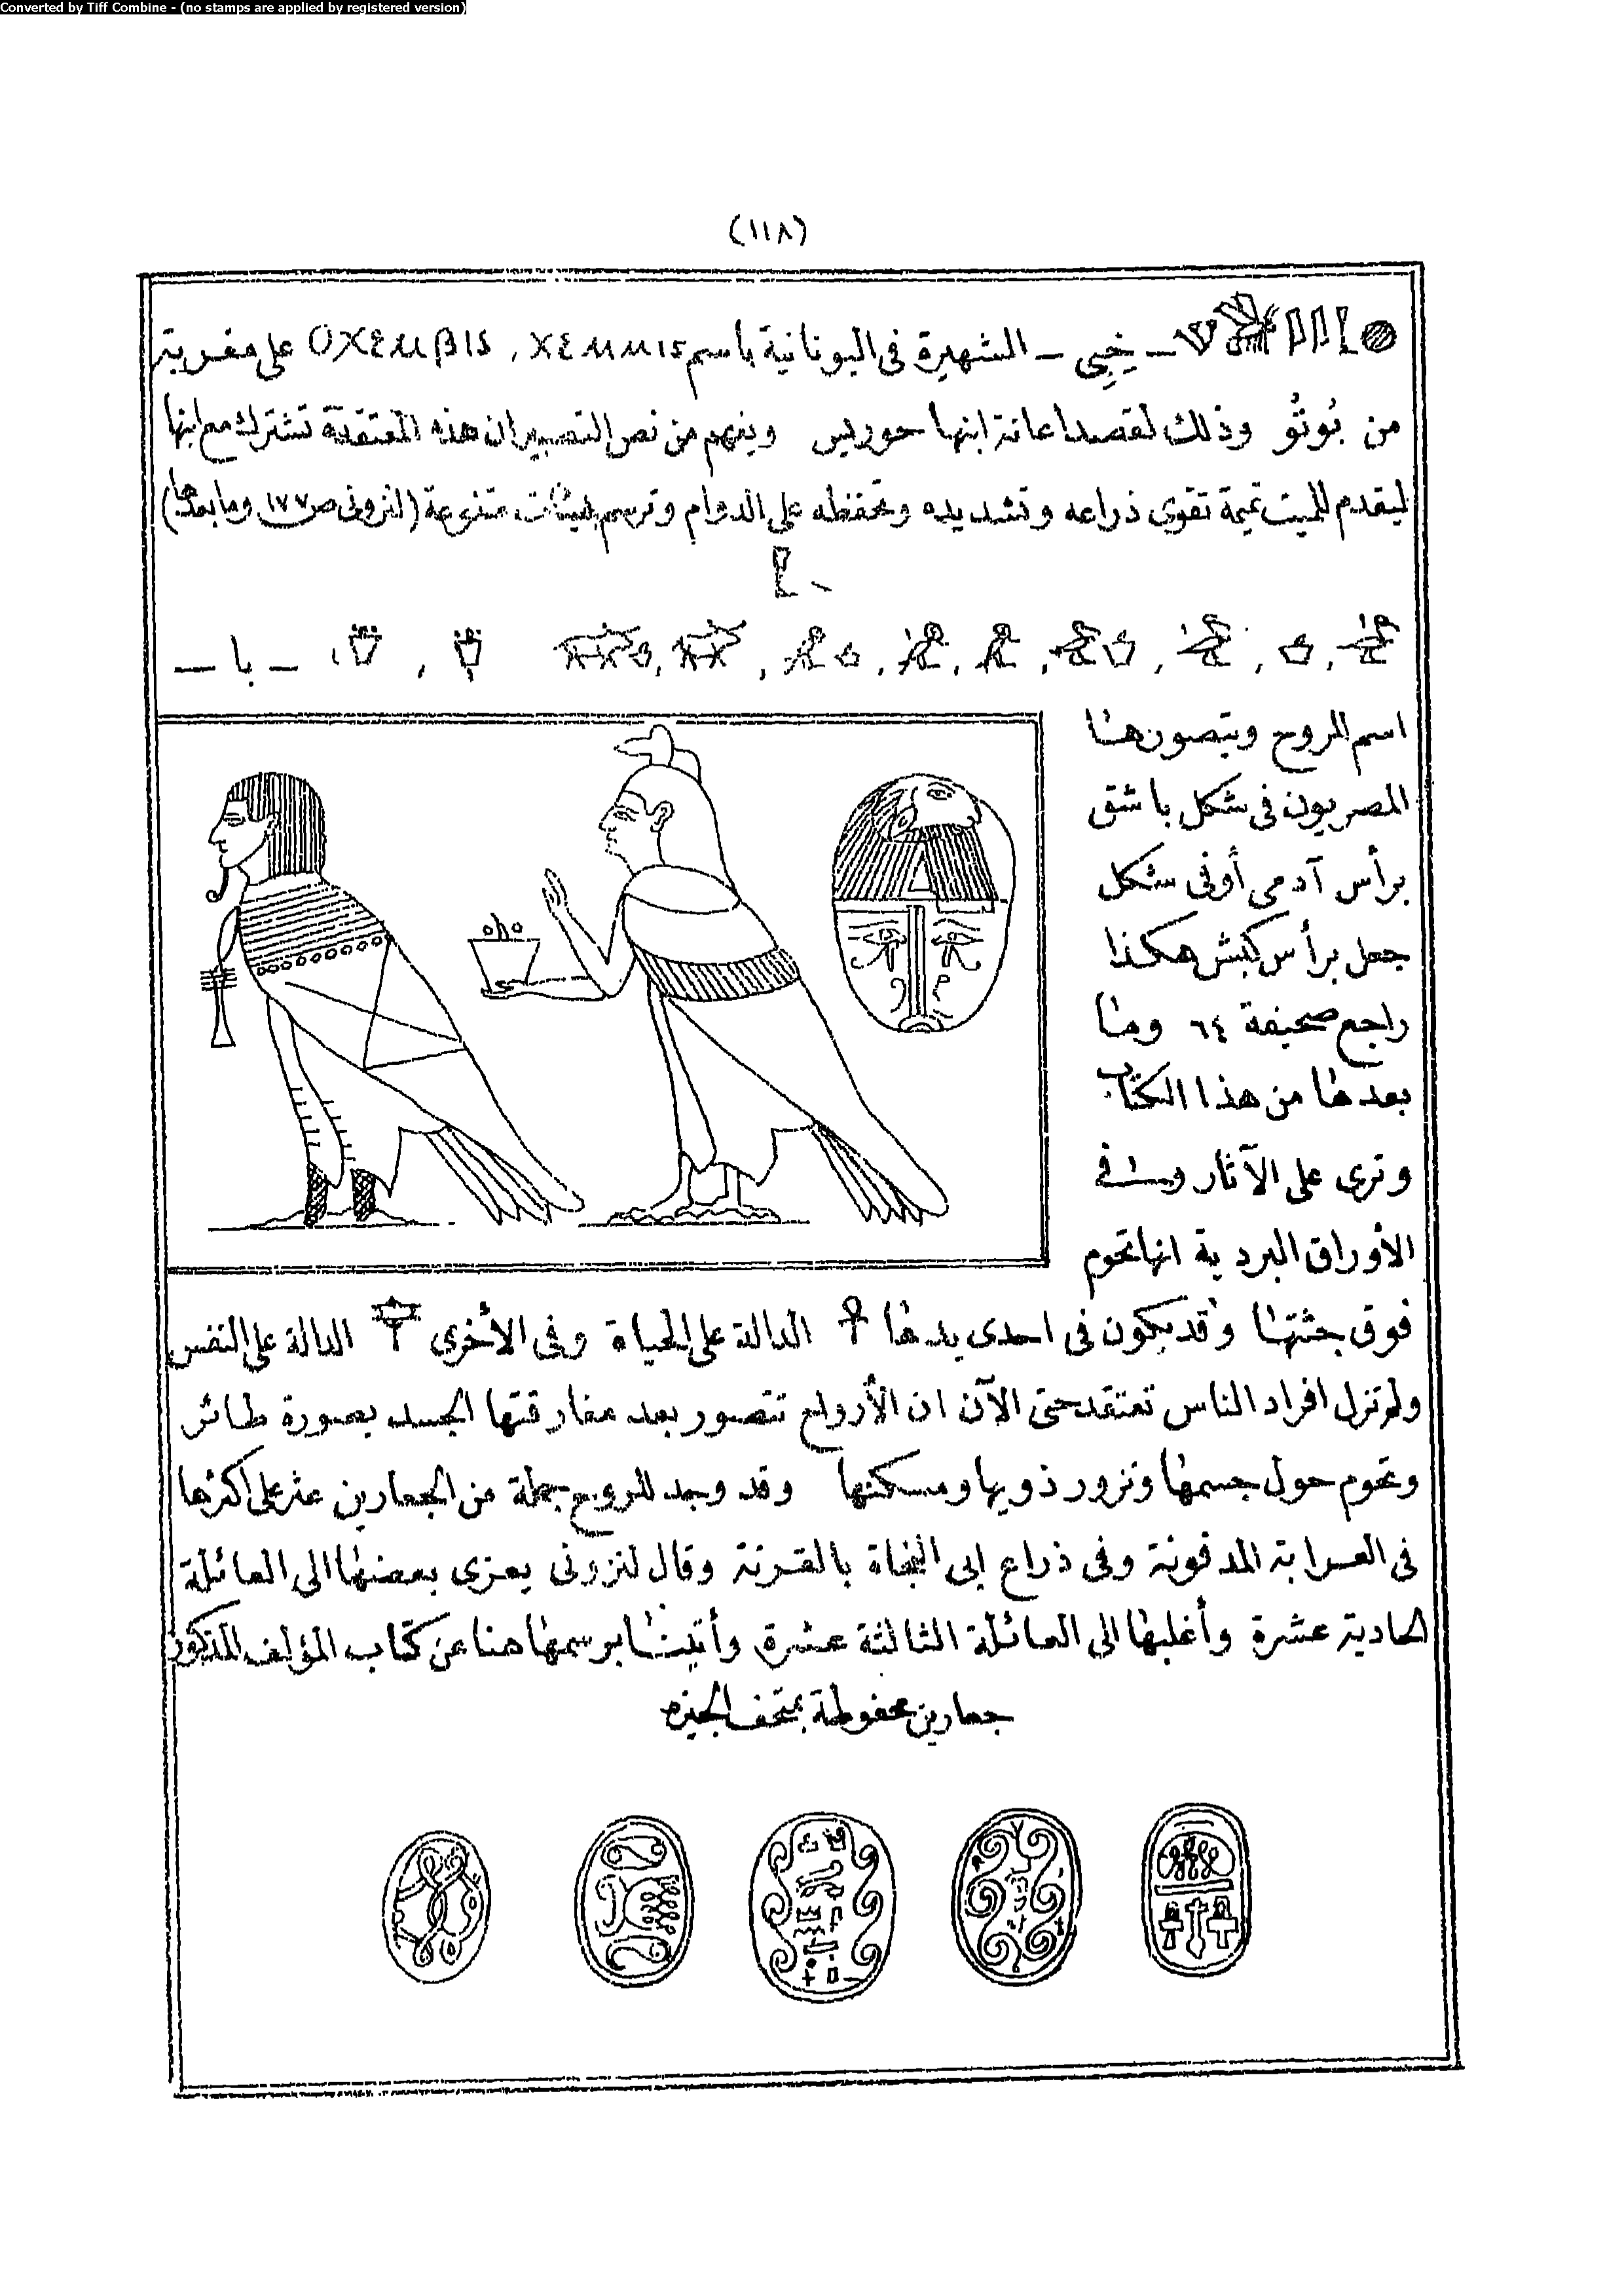 Converted by Tiff Combine - (no stamps are applied by registered version)
(١١٨)
ـ خِبِى ـ الشهيرة فى اليونانية باسم ΧΕΜΜΙS , ΟΧΕΜΒΙS على مقربة
من بُوتُو وذلك لقصد اعانة ابنها حوريس ويفهم من نص التصبير ان هذه المعتقدة تشترك مع ابنها
ليقدم للميت تميمة تقوى ذراعه وتشديده وتحفظه على الدوام وترسم بهيئات متنوعة (لنزونى ص ١٧٧ وما بعدها)
ـ با ـ
اسم للروح ويتصورها
المصريون فى شكل باشق
برأس آدمى أو فى شكل
جعل برأس كبش هكذا
راجع صحيفة ٦٤ وما
بعدها من هذا الكتاب
وترى على الآثار وفى
الأوراق البردية انها تحوم
فوق جثتها وقد يكون فى احدى يدها الدالة على الحياة وفى الأخرى الدالة على النفس
ولم تزل افراد الناس تعتقد حتى الآن ان الأرواح تتصور بعد مفارقتها الجسد بصورة طائر
وتحوم حول جسمها وتزور ذويها ومسكنها وقد وجد للروح جملة من الجعارين عثر على اكثرها
فى العرابة المدفونة وفى ذراع ابى النجاة بالقرنة وقال لنزونى يعزى بعضها الى العائلة
الحادية عشرة وأغلبها الى العائلة الثالثة عشرة وأتينا برسمها هنا عن كتاب المؤلف المذكور
جعارين محفوظة بمتحف الجيزه